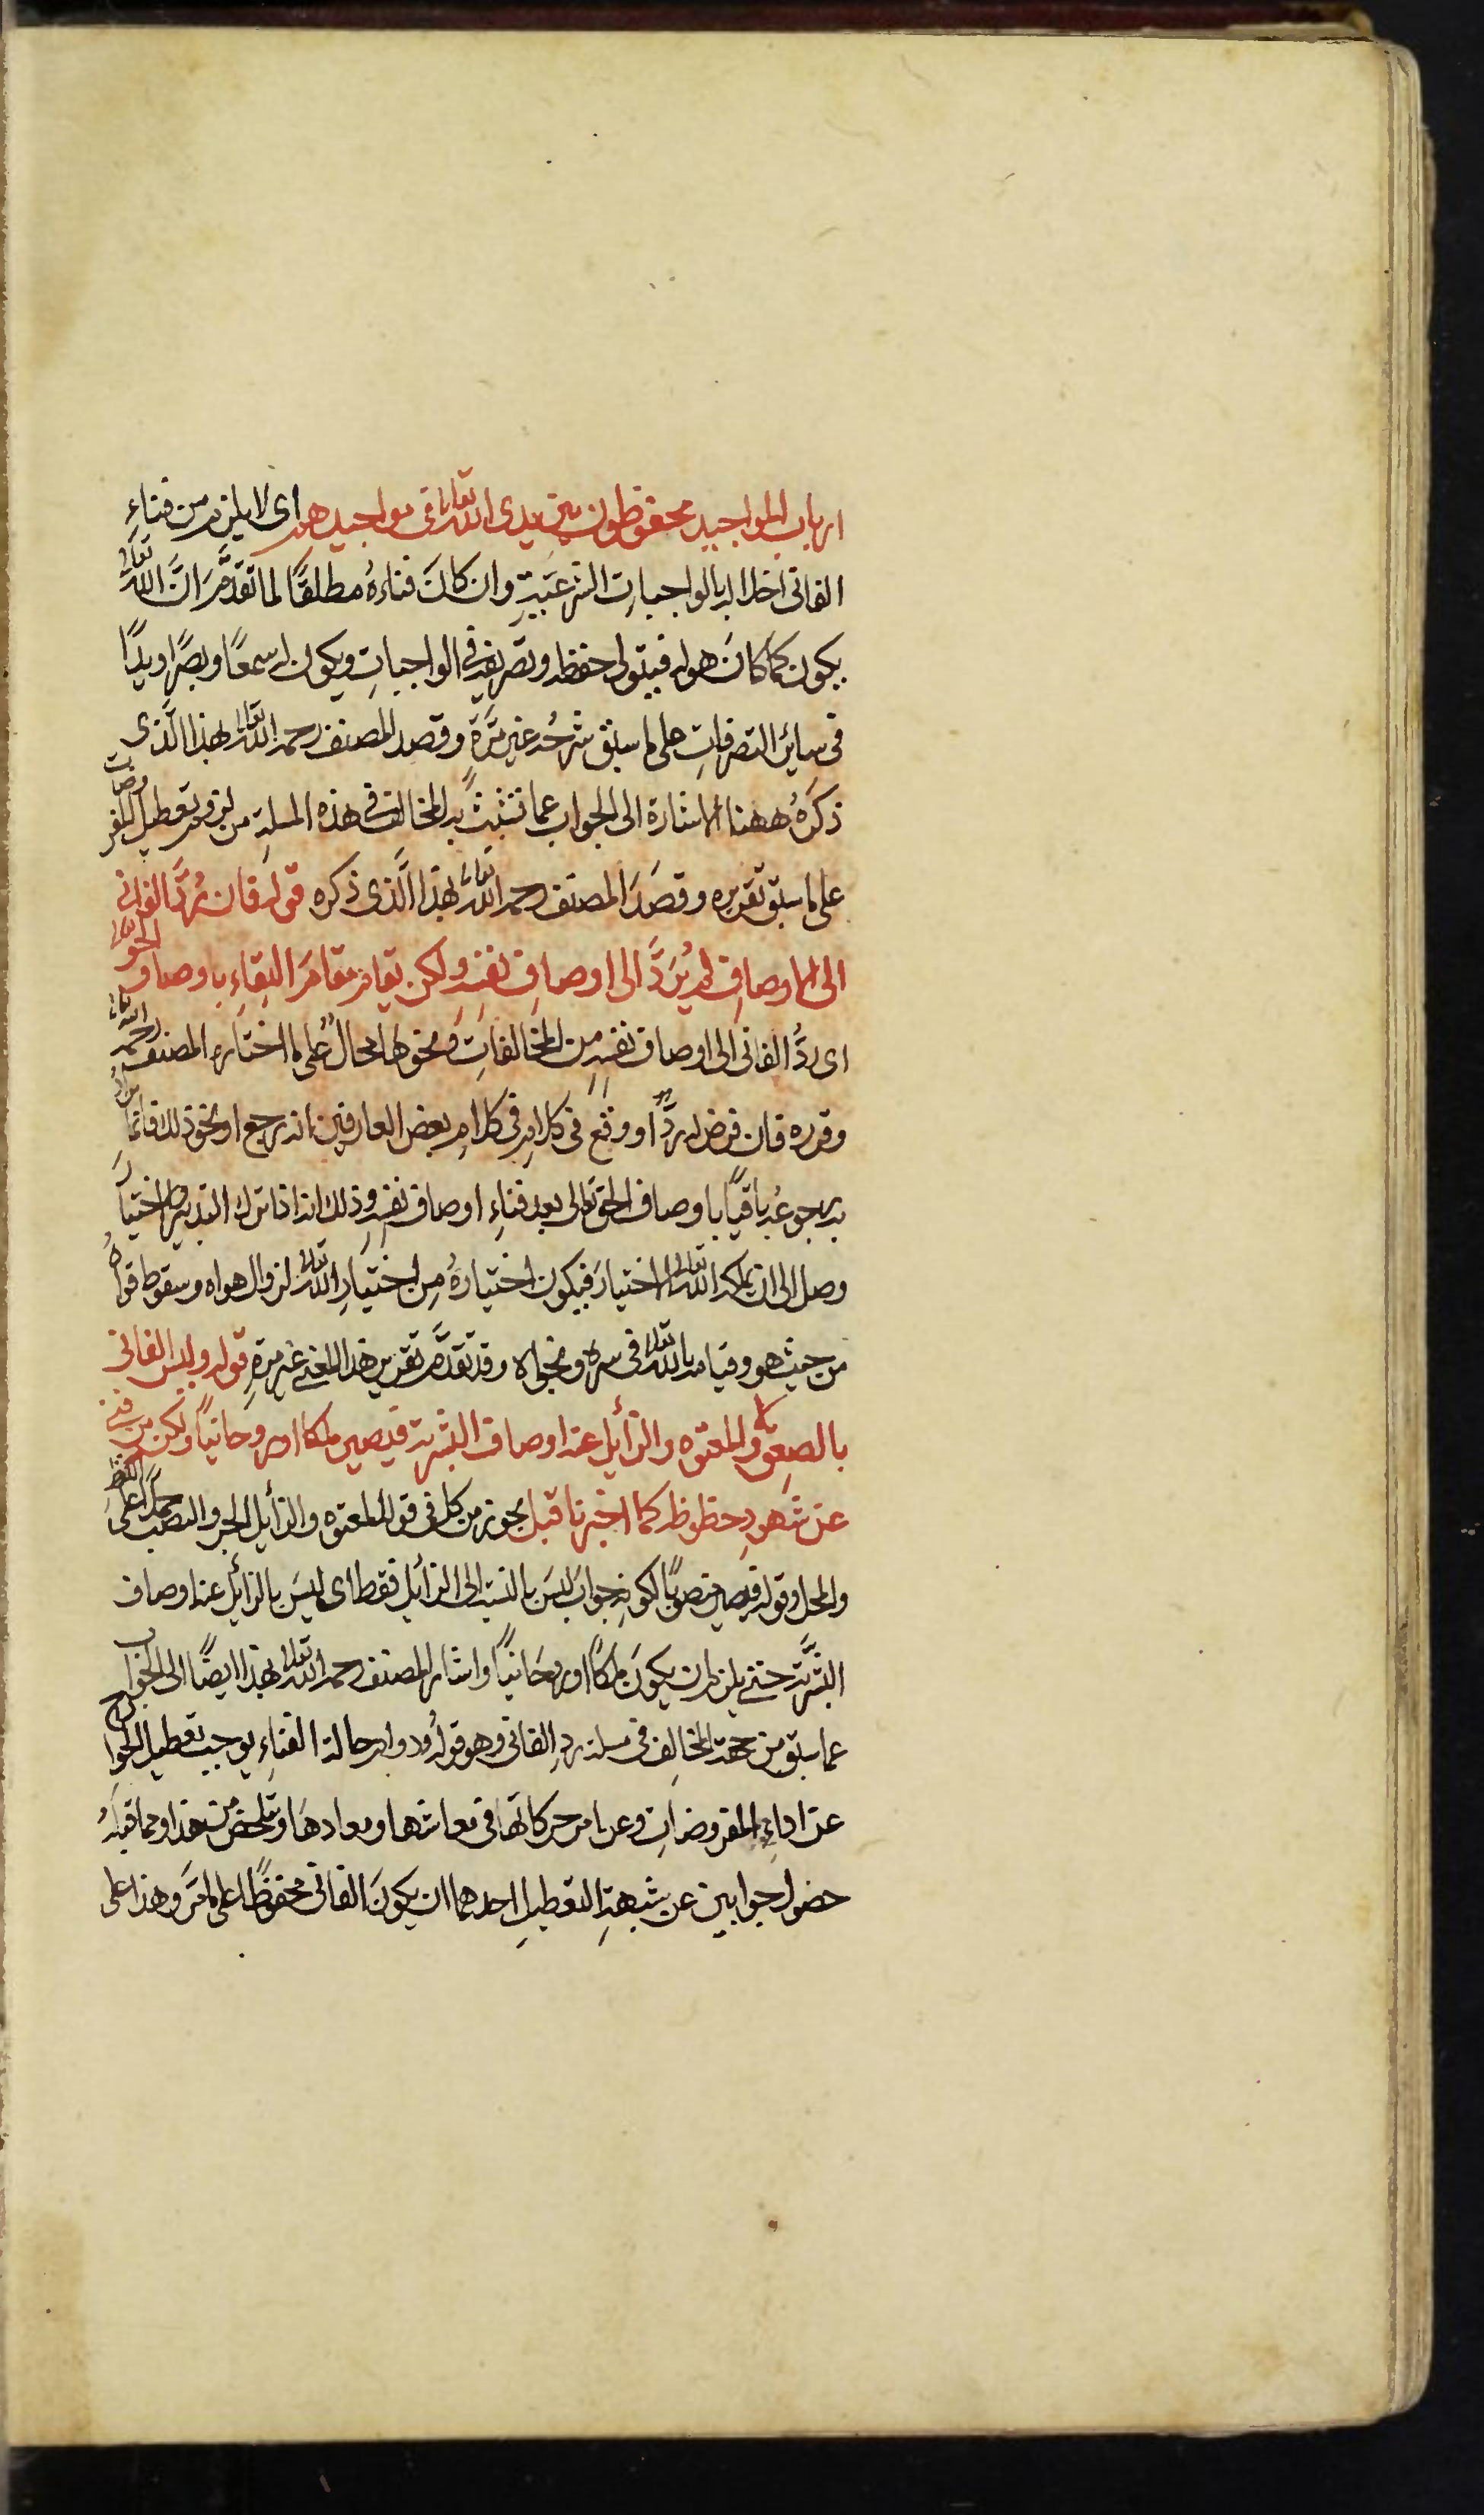 ارباب المواجيد محفوظون بين يدى الله تعالى فى مواجيدهم اى لا يلزم من فناءِ
الفانى اخلاله بالواجبات الشرعَيَّةِ وان كانَ فناءهُ مطلقًا لما تقدَّمَ انَّ الله تعالى
يكون كما كانَ هو له فيتولى حفظه وتصريفه فى الواجباتِ ويكون له سمعًا وبصرًا ويدًا
فى سائر التصرفاتِ على ما سبق شرحُه غير مَرَّةٍ وقصد المصنف رحمه الله تعالى بهذا الَّذى
ذكرَهُ ههنا الاشارة الى الجواب عما تشبث به المخالف فى هذه المسلة من لزوم تعطيل المفروضات
على ما سبق تقريره وقصَدَ المصنف رحمه الله تعالى بهذا الَّذى ذكره قوله فان رُدَّ الفانى
الى الاوصافِ لم يُرَدَّ الى اوصافِ نفسِه ولكن يقام مقامَ البقاءِ باوصاف الحق تعالى
اى ردُّ الفانى الى اوصاف نفسِه من المخالفاتِ ونحوها محالٌ على ما اختاره المصنف رحمه الله تعالى
وقرره فان فرض له ردٌّ او وقع فى كلامِه فى كلامِ بعض العارفين انه رجع او نحو ذلك فانما
به رجوعُه باقيًا باوصاف الحق تعالى بعد فناءِ اوصاف نفسِه وذلك انه اذا ترك التدبير والاختيارَ
وصل الى ان يملكه الله تعالى الاختيارَ فيكون اختيارهُ مِن اختيارِ الله تعالى لزوال هواه وسقوط قواهُ
من حيث هو وقيامه بالله تعالى فى سره ونجواه وقد تقدَّمَ تقرير هذا المعنى غير مرةٍ قوله وليس الفانى
بالصعِق ولا المعتوه ولا الزأيل عنه اوصاف البشرية فيصير ملكا او روحانيًا ولكن من فنى
عن شهودِ حظوظه كما اخبرنا قبل يجوز من كل فى قوله المعتوه والزأيل الجر والنصب حملًا على اللفظ
والمحل وقوله فيصير منصوبًا لكونه جوابَ ليسَ بالنسبة الى الزائل فقط اى ليسَ بالزأيل عنه اوصاف
البشَّرية حتى يلزم ان يكونَ ملكًا او روحَانيًا واشار المصنف رحمه الله تعالى بهذا ايضًا الى الجواب
عما سبق من حجة المخالِف فى مسلة ردِ الفانى وهو قولُه ودوام حالة الفناءِ يوجب تعطيل الجوارح
عن اداءِ المفروضاتِ وعن حركاتها فى معاشها ومعادهَا وتلخص من هذا ومما قبلهُ
حصول جوابين عن شبهةِ التعطيلِ احدهما ان يكونَ الفانى محفوظًا على ما مَرَّ وهذا على